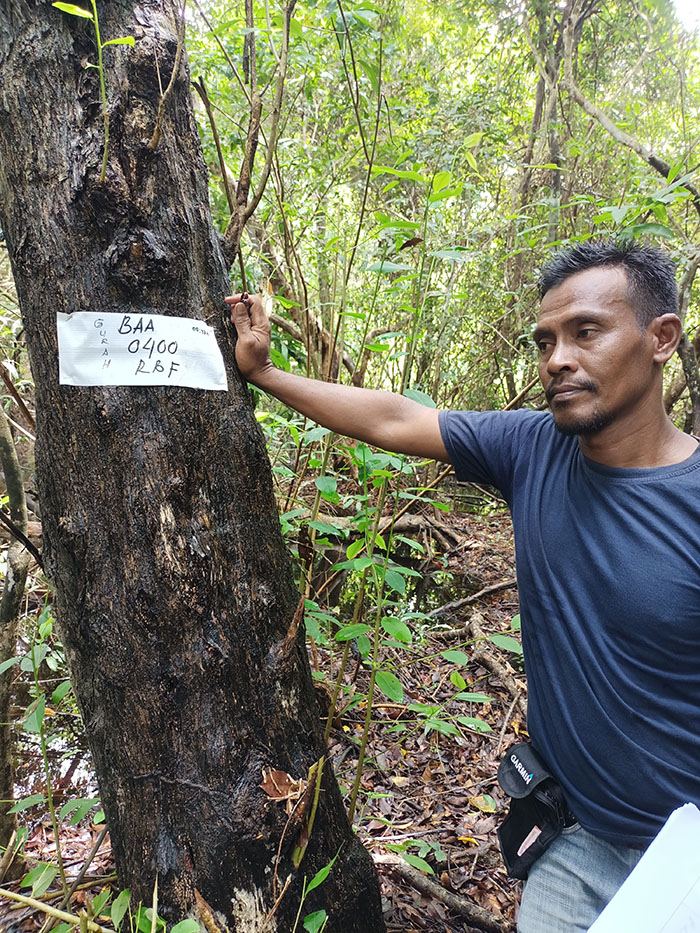 GURAH
BAA
0400
RBF
GARMIN